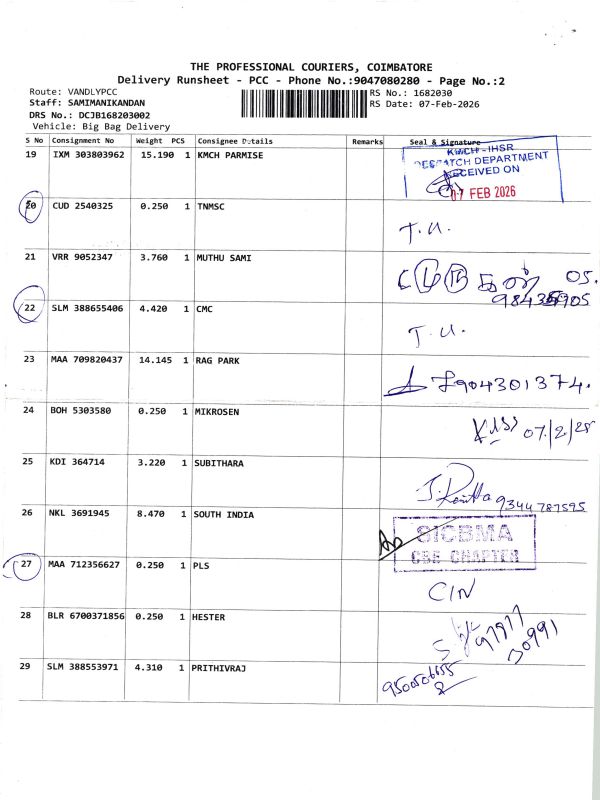 THE PROFESSIONAL COURIERS, COIMBATORE
Delivery Runsheet - PCC - Phone No.:9047080280 - Page No.:2
Route: VANDLYPCC
RS No.: 1682030
Staff: SAMIMANIKANDAN
RS Date: 07-Feb-2026
DRS No.: DCJB168203002
Vehicle: Big Bag Delivery
S No Consignment No Weight PCS Consignee Details Remarks Seal & Signature
19 IXM 303803962 15.190 1 KMCH PARMISE
KMCH - IHSR
DESPATCH DEPARTMENT
RECEIVED ON
07 FEB 2026
20 CUD 2540325 0.250 1 TNMSC
T.U.
21 VRR 9052347 3.760 1 MUTHU SAMI
22 SLM 388655406 4.420 1 CMC
T.U.
23 MAA 709820437 14.145 1 RAG PARK
24 BOH 5303580 0.250 1 MIKROSEN
25 KDI 364714 3.220 1 SUBITHARA
9344787595
26 NKL 3691945 8.470 1 SOUTH INDIA
SICBMA
CBE CHAPTER
27 MAA 712356627 0.250 1 PLS
C/N
28 BLR 6700371856 0.250 1 HESTER
97917
30991
29 SLM 388553971 4.310 1 PRITHIVRAJ